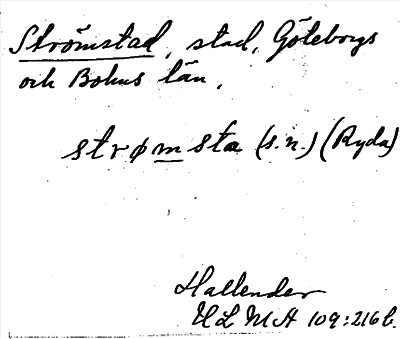 Strömstad, stad, Göteborgs
och Bohus län,
strømsta (s.n.) (Ryda)
Hallender
ULMA 109:216b.